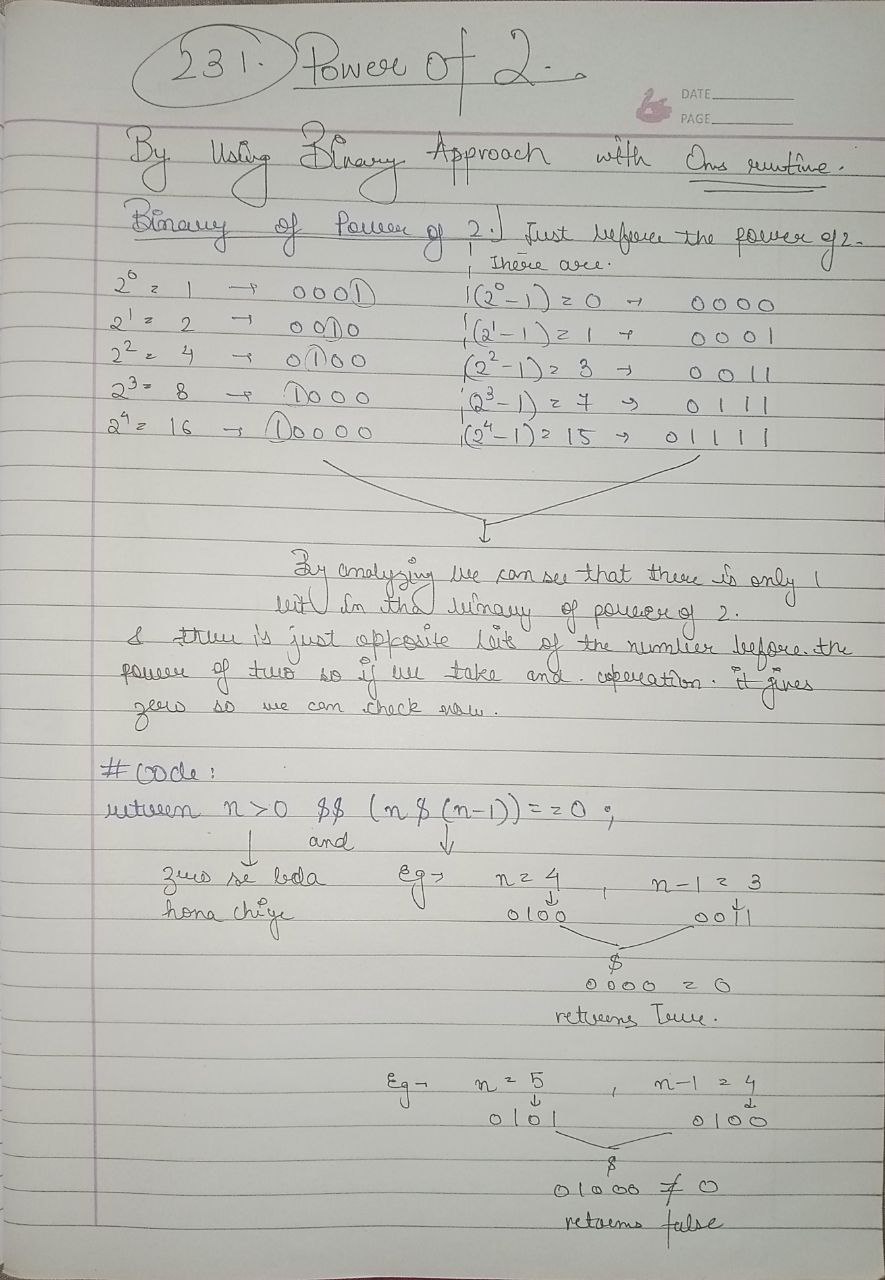 231. Power Of 2.
DATE
PAGE
By Using Binary Approach with 0ms runtime.
Binary of Power of 2. Just before the power of 2.
There are.
2^0 = 1 → 0001 (2^0-1) = 0 → 0000
2^1 = 2 → 0010 (2^1-1) = 1 → 0001
2^2 = 4 → 0100 (2^2-1) = 3 → 0011
2^3 = 8 → 1000 (2^3-1) = 7 → 0111
2^4 = 16 → 10000 (2^4-1) = 15 → 01111
By analyzing we can see that there is only 1
bit in the binary of power of 2.
& there is just opposite bits of the number before the
power of two so if we take and operation. it gives
zero so we can check now.
# Code:
return n>0 $$ (n $ (n-1)) == 0 ;
and
zero se bda Eg → n = 4 , n-1 = 3
hona chiye 0100 0011
$
0000 = 0
returns True.
Eg → n = 5 , n-1 = 4
0101 0100
$
01000 ≠ 0
returns false